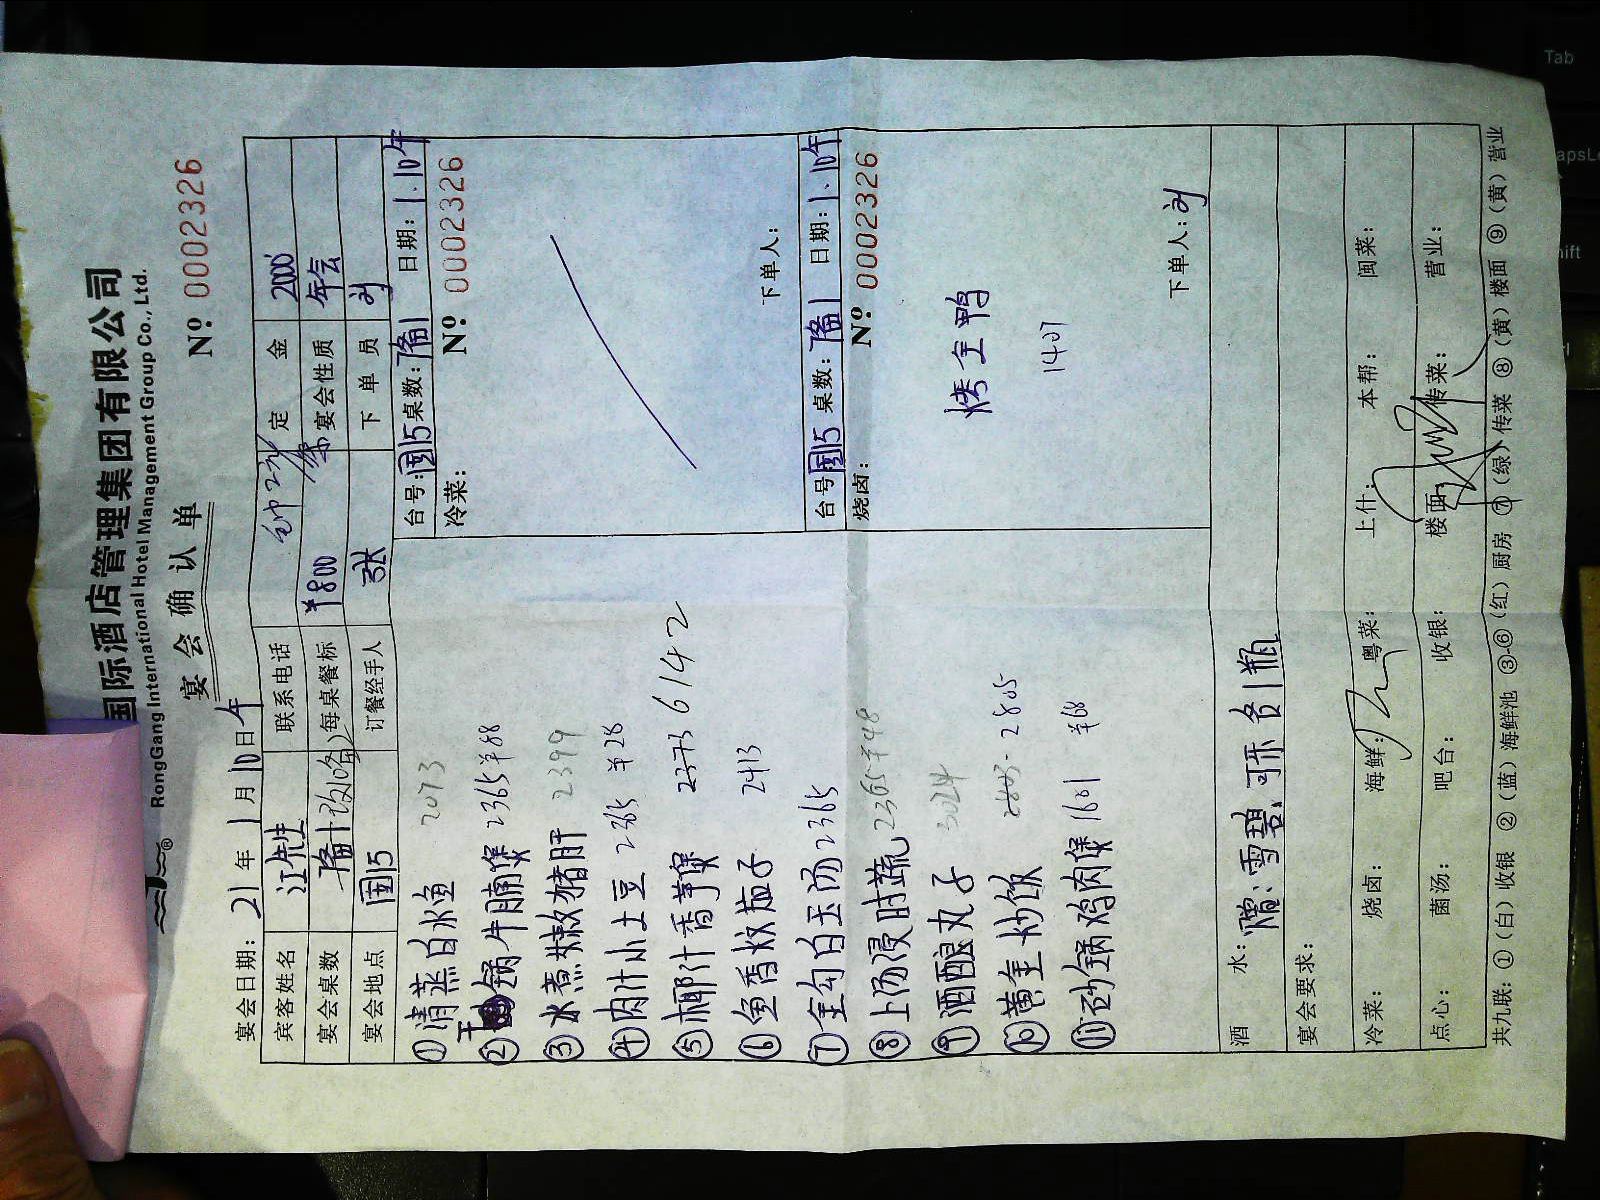 国际酒店管理集团有限公司
RongGang International Hotel Management Group Co., Ltd.
宴会确认单
Nº 0002326
宴会日期: 21年 1月10日午
宾客姓名 江先生 联系电话 定金 2000
宴会桌数 每桌餐标 ¥800 宴会性质 年会
宴会地点 国15 订餐经手人 张 下单员 刘
①清蒸白水鱼 2073
②干锅牛腩煲 2365 ¥88
③水煮嫩猪肝 2399
④肉汁小土豆 2365 ¥28
⑤椰汁香芋煲 2373 6142
⑥鱼香炆茄子 2413
⑦金勾白玉汤 2365
⑧上汤浸时蔬 2365 ¥48
⑨酒酿丸子 3024
⑩黄金炒饭 2803 - 2805
⑪砂锅鸡肉煲 1601 ¥68
台号: 国15 桌数: 日期: 1.10午
冷菜: Nº 0002326
下单人:
台号 国15 桌数: 日期: 1.10午
烧卤: Nº 0002326
烤全鸭
1401
下单人: 刘
酒水: 赠: 雪碧, 可乐各1瓶
宴会要求:
冷菜: 烧卤: 海鲜: 粤菜: 上什: 本帮: 闽菜:
点心: 菌汤: 吧台: 收银: 楼面: 传菜: 营业:
共九联: ①(白)收银 ②(蓝)海鲜池 ③-⑥(红)厨房 ⑦(绿)传菜 ⑧(黄)楼面 ⑨(黄)营业
Tab